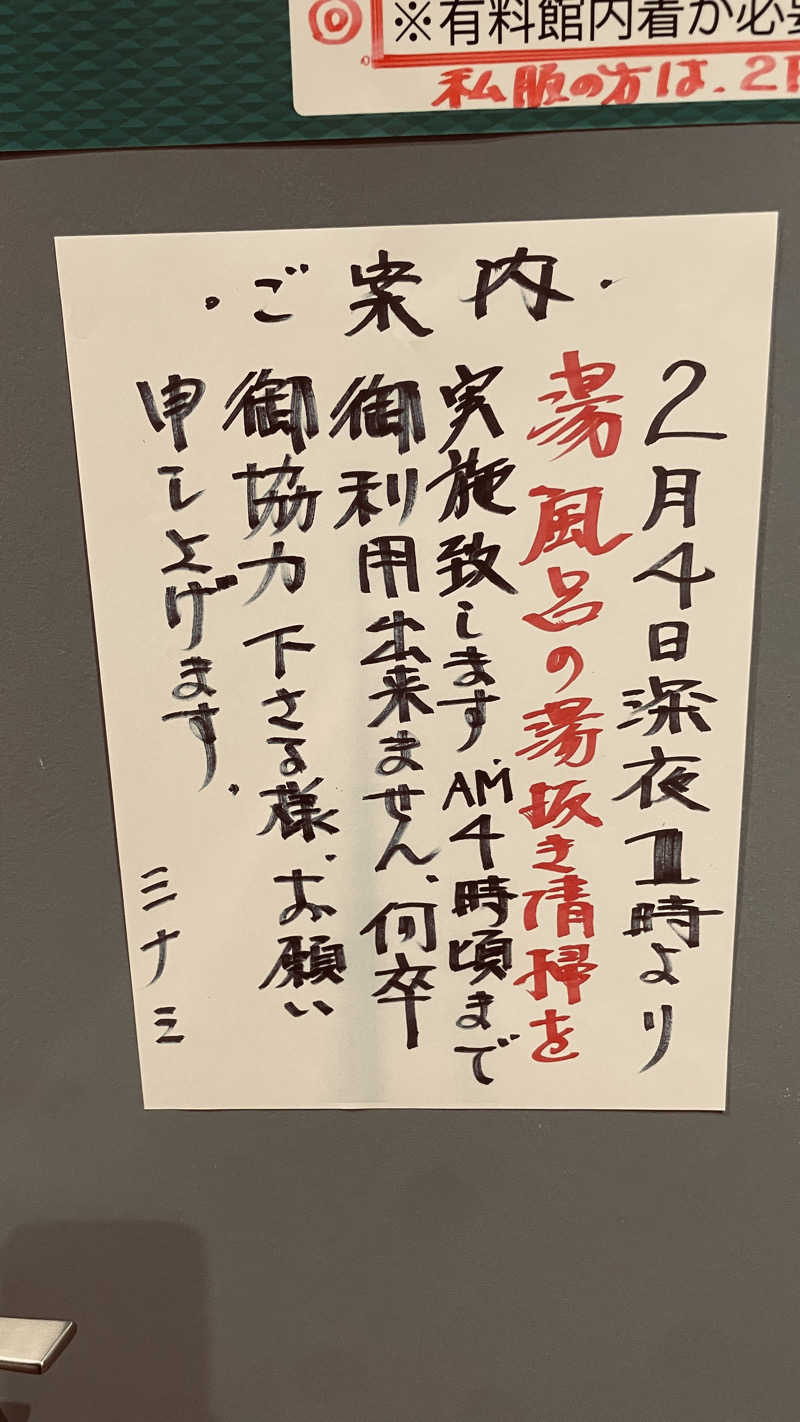 ※有料館内着が必
私服の方は、2F
・ご案内・
2月4日深夜1時より
湯風呂の湯抜き清掃を
実施致します、AM4時頃まで
御利用出来ません、何卒
御協力下さる様、お願い
申し上げます、
ミナミ